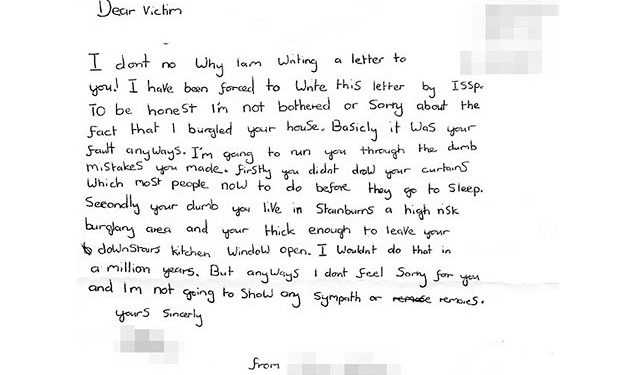 Dear Victim
I dont no Why Iam Writing a letter to
you! I have been forced to Write this letter by ISSP.
To be honest I'm not bothered or Sorry about the
fact that I burgled your house. Basicly it was your
fault anyways. I'm going to run you through the dumb
mistakes you made. firstly you didnt drow your curtains
Which most people now to do before they go to Sleep.
Secondly your dumb you live in Stainburns a high risk
burglary area and your thick enough to leave your
downstairs kitchen Window open. I Wouldnt do that in
a million years. But anyways I dont feel Sorry for you
and Im not going to Show any Sympath or remores.
yours Sincerly
from